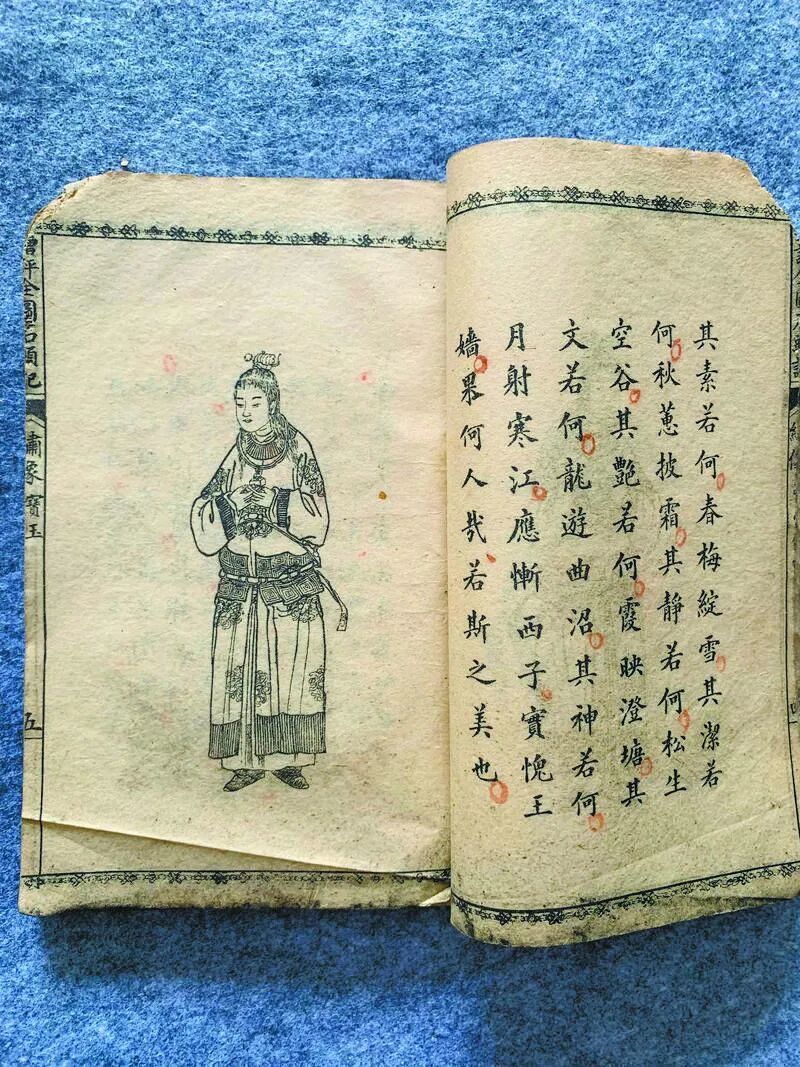 其素若何春梅綻雪其潔若
何秋蕙披霜其靜若何松生
空谷其艷若何霞映澄塘其
文若何龍遊曲沼其神若何
月射寒江應慚西子實愧王
嬙果何人哉若斯之美也
評全圖石頭記
繡像 寶玉
五